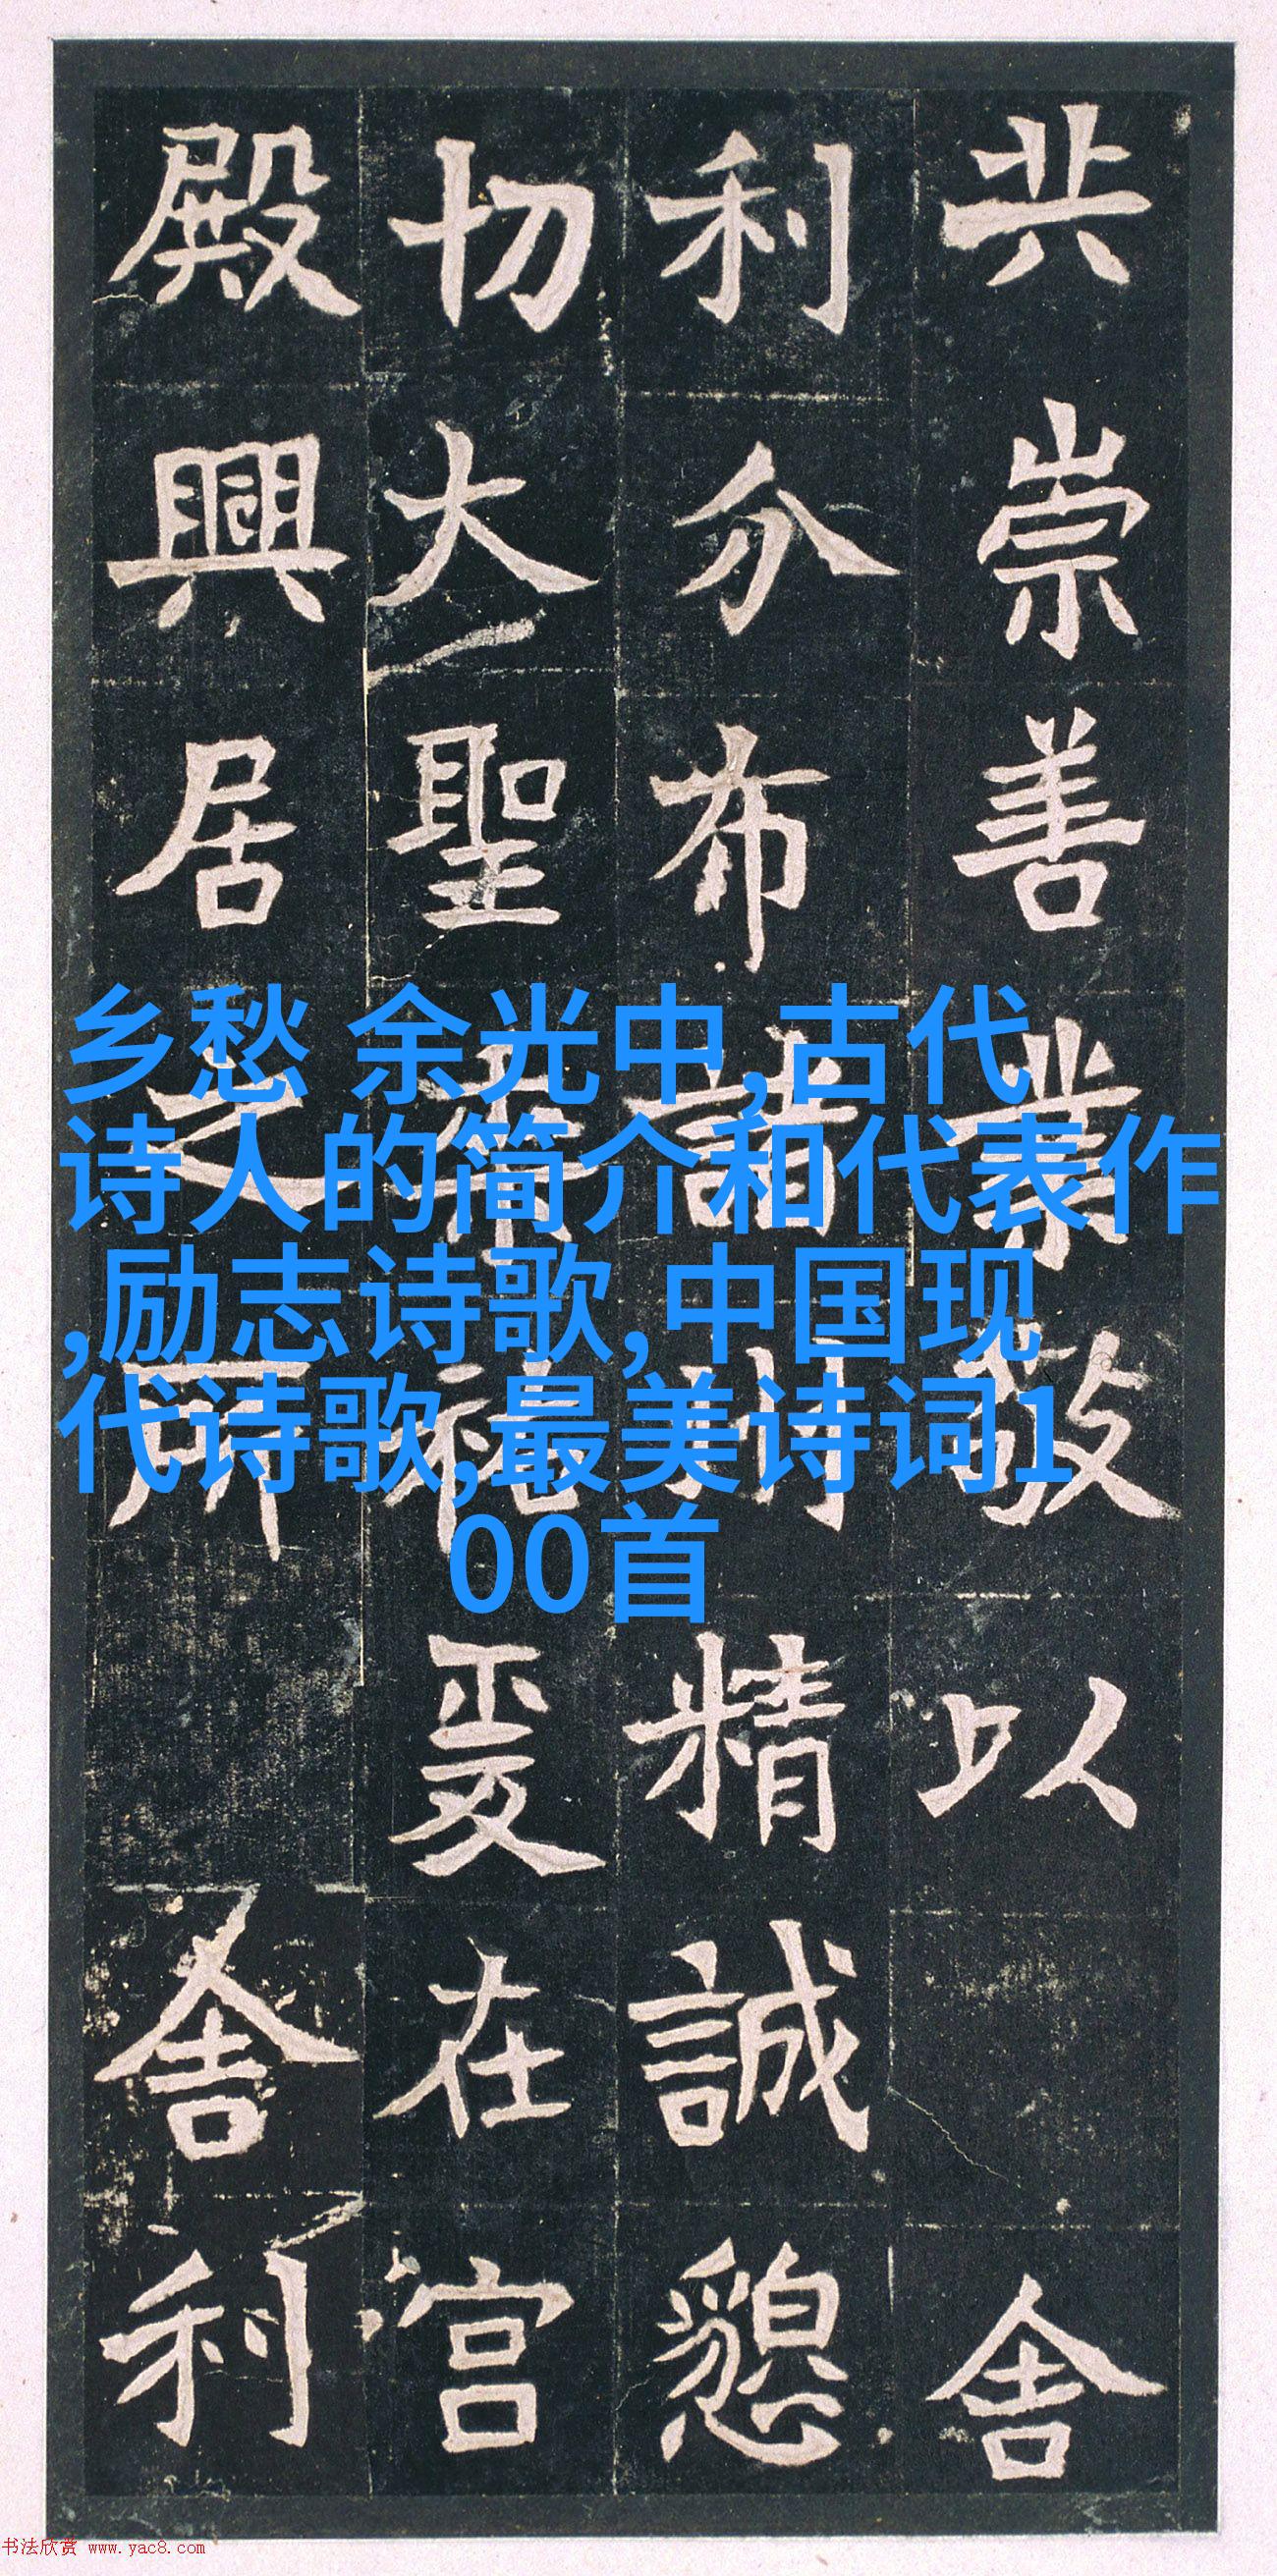 共崇善業敬以舍
利分布諸州精誠懇
切大聖爰在宫
殿興居之所舍利
乡愁 余光中,古代
诗人的简介和代表作
,励志诗歌,中国现
代诗歌,最美诗词1
00首
书法欣赏 www.yac8.com